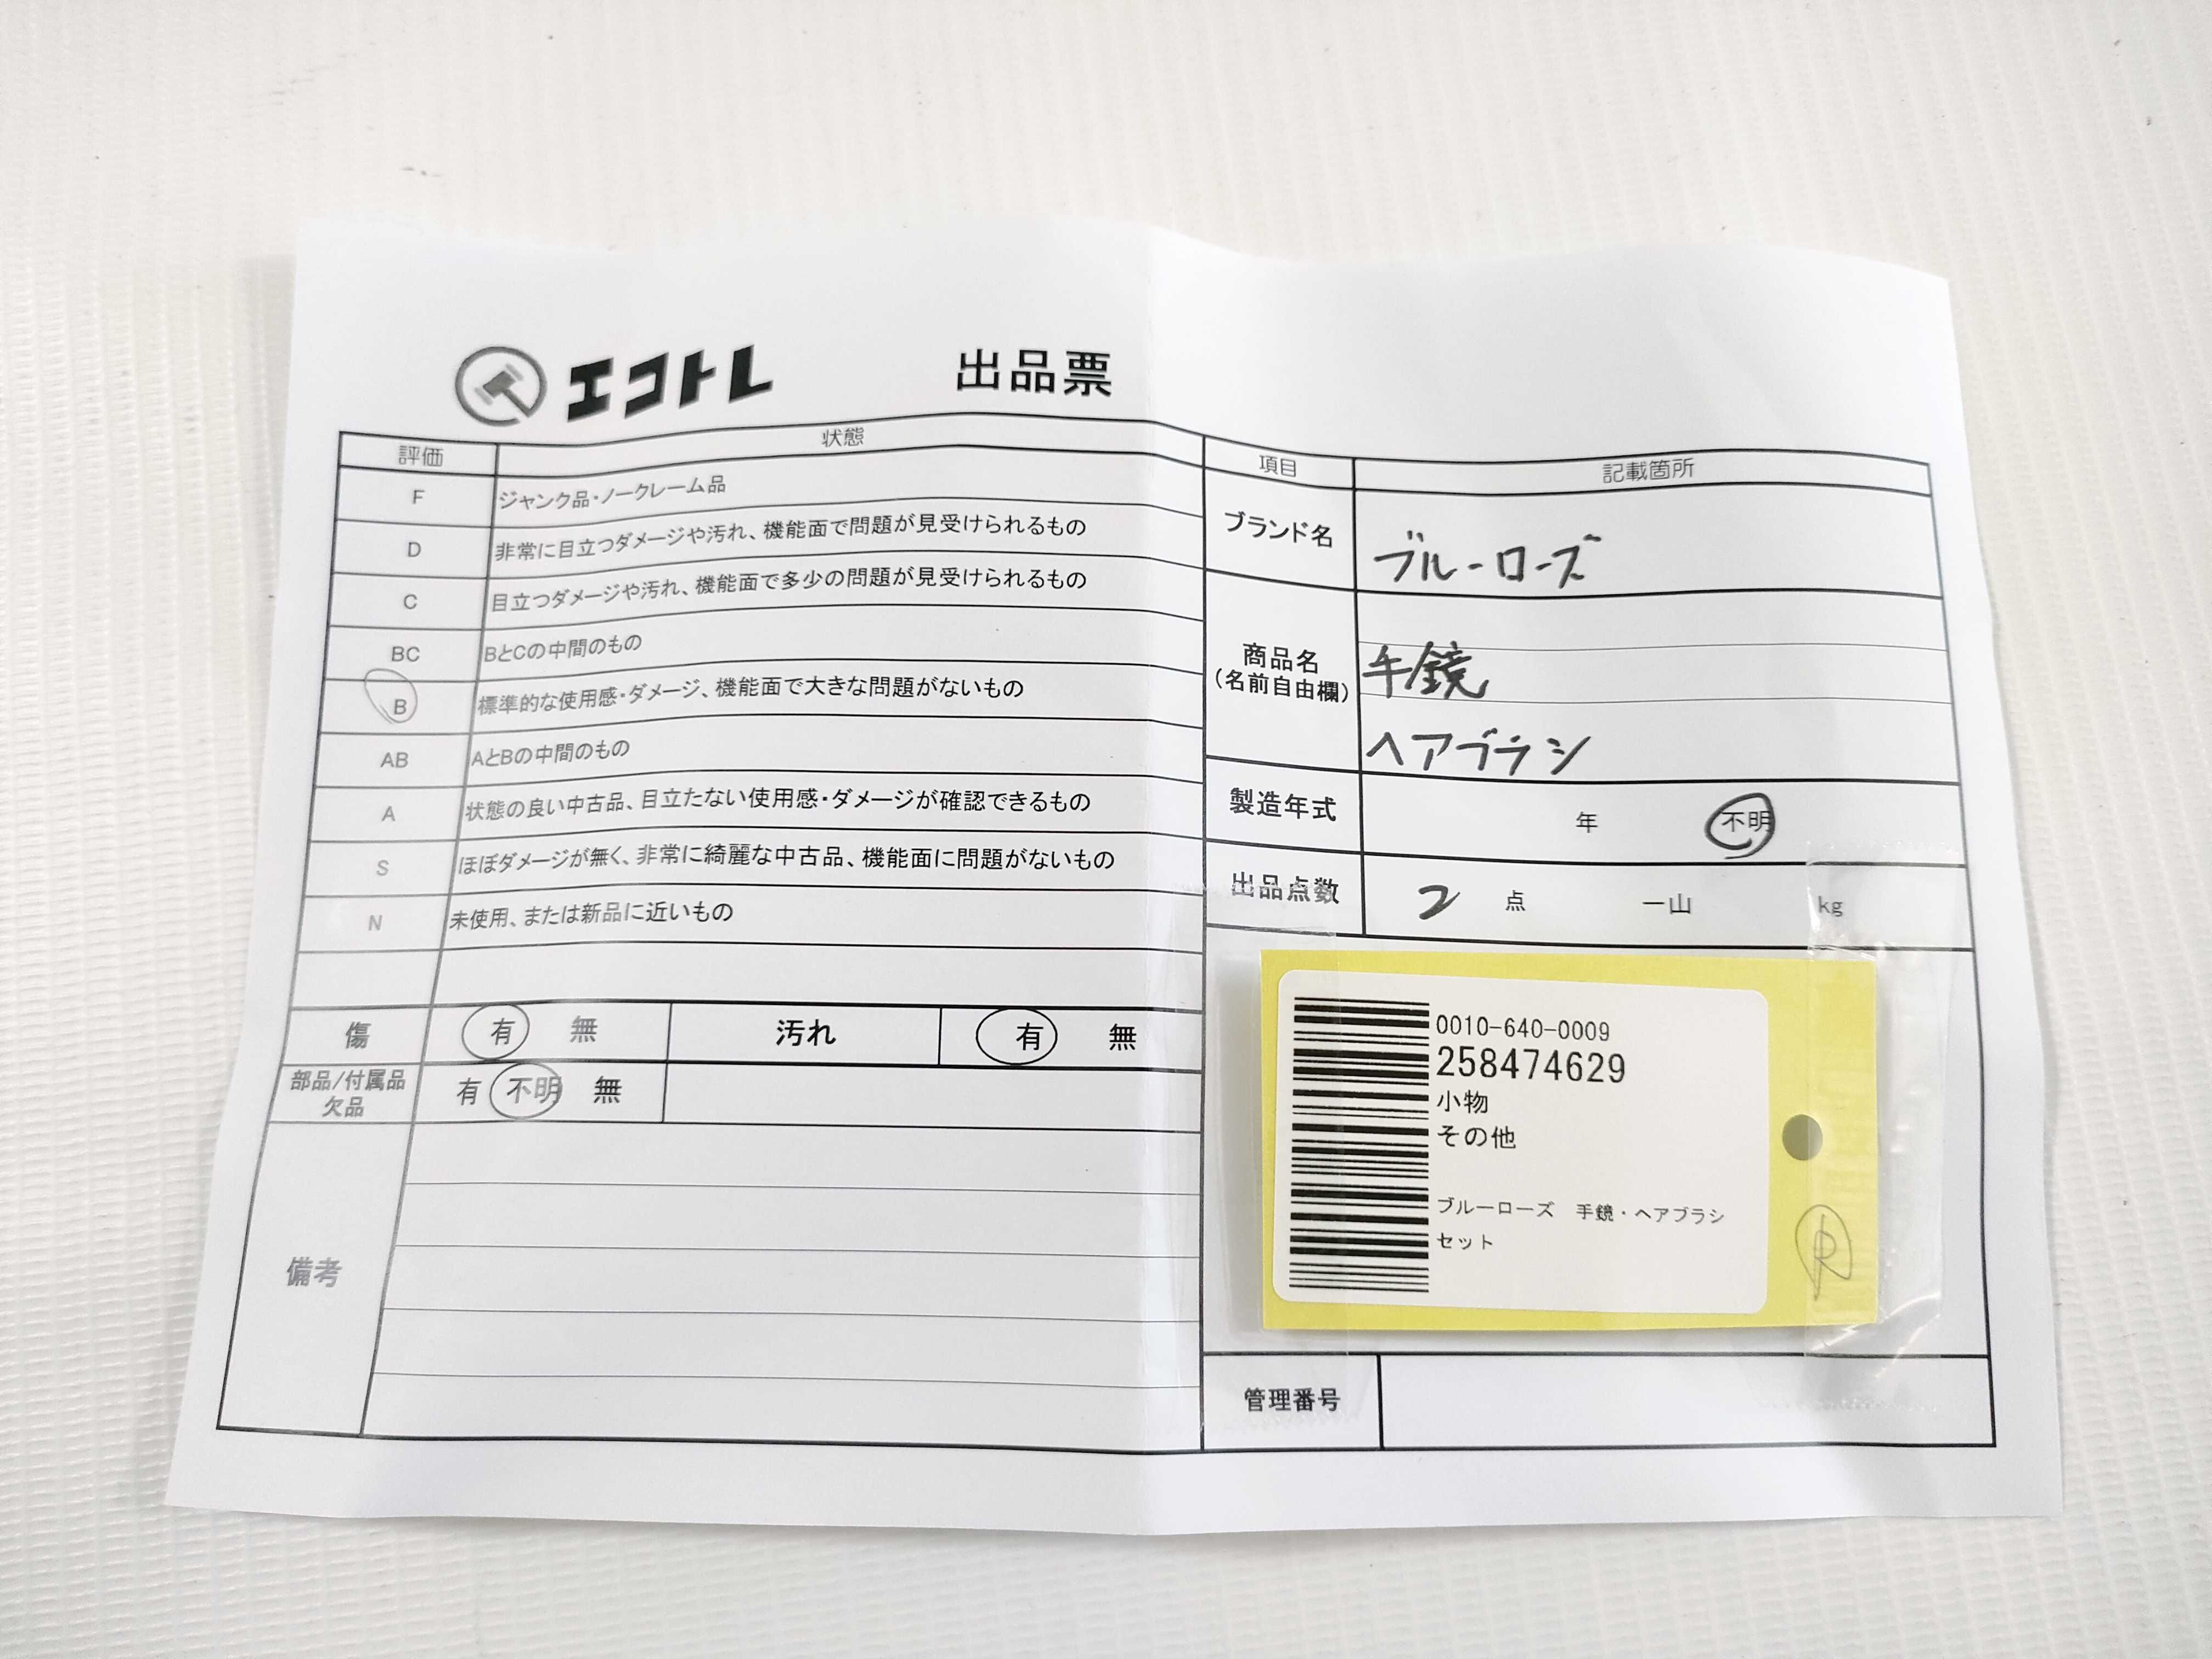 エコトレ 出品票
評価 状態
F ジャンク品・ノークレーム品
D 非常に目立つダメージや汚れ、機能面で問題が見受けられるもの
C 目立つダメージや汚れ、機能面で多少の問題が見受けられるもの
BC BとCの中間のもの
B 標準的な使用感・ダメージ、機能面で大きな問題がないもの
AB AとBの中間のもの
A 状態の良い中古品、目立たない使用感・ダメージが確認できるもの
S ほぼダメージが無く、非常に綺麗な中古品、機能面に問題がないもの
N 未使用、または新品に近いもの
傷 有 無 汚れ 有 無
部品/付属品
欠品 有 不明 無
備考
項目 記載箇所
ブランド名 ブルーローズ
商品名
(名前自由欄)
手鏡
ヘアブラシ
製造年式 年 不明
出品点数 2 点 一山 kg
0010-640-0009
258474629
小物
その他
ブルーローズ 手鏡・ヘアブラシ
セット
管理番号